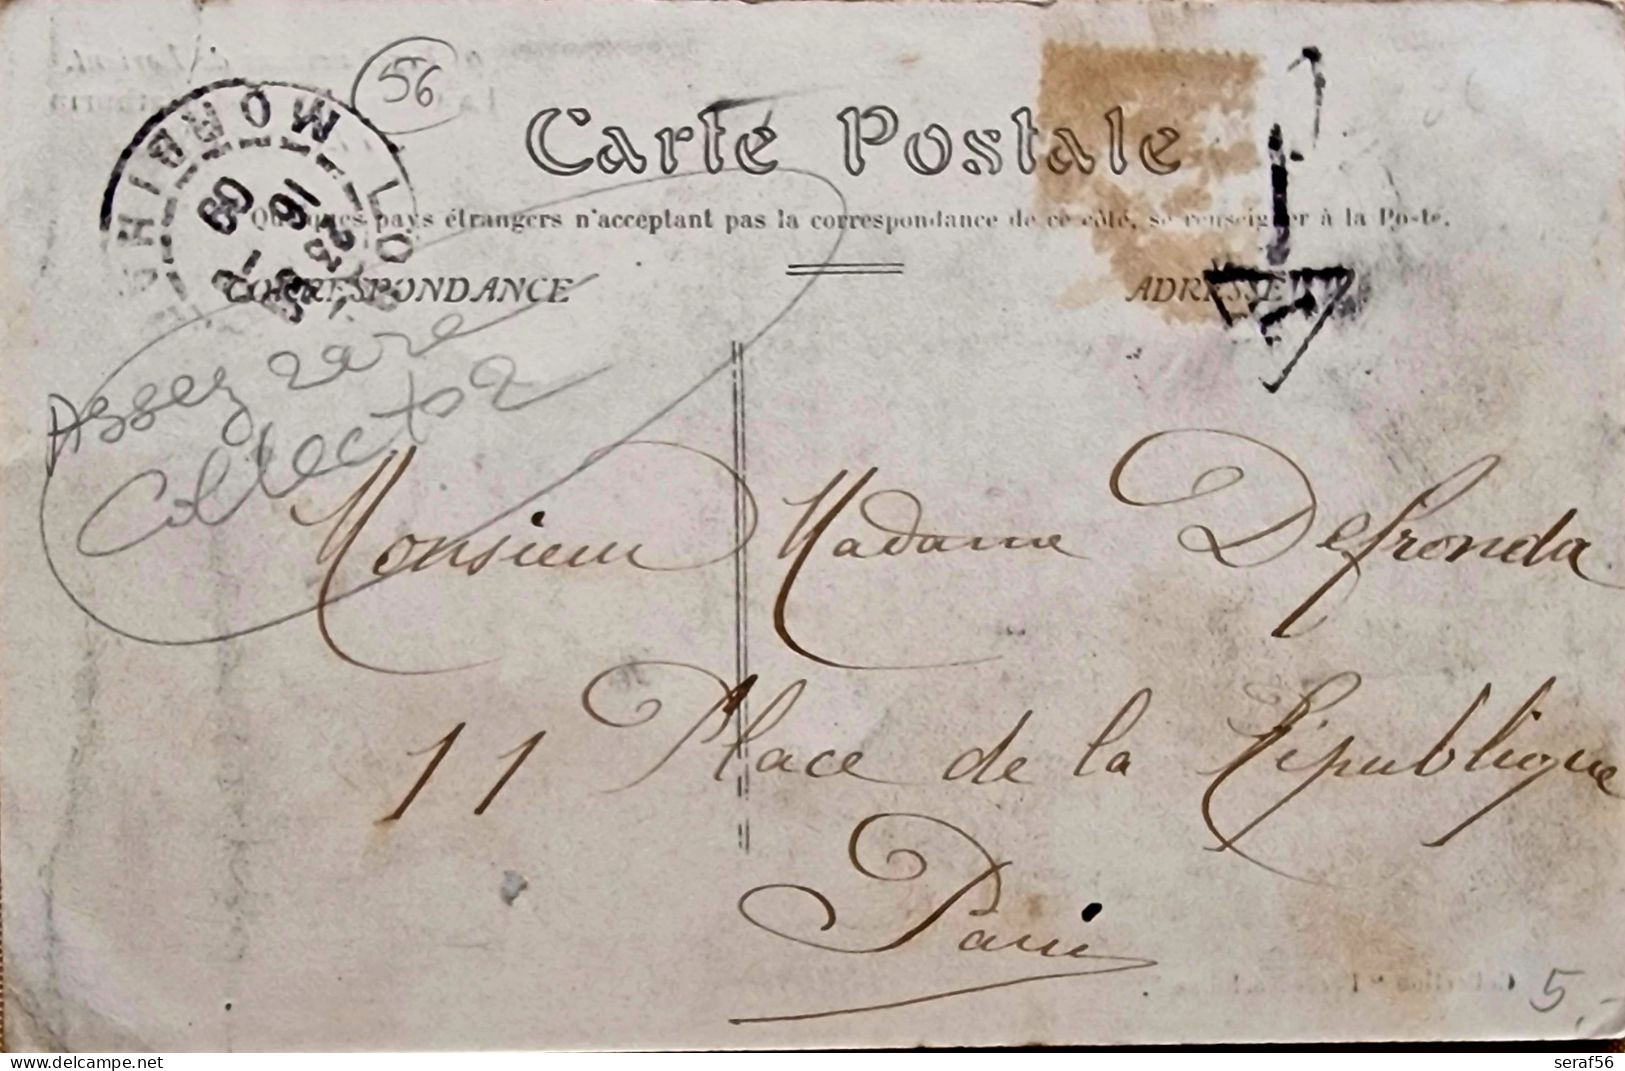 56
Carte Postale
Quelques pays étrangers n'acceptant pas la correspondance de ce côté, se renseigner à la Poste.
CORRESPONDANCE
ADRESSE
MORBIHAN
Assez rare
Collector
Monsieur Madame Defronda
11 Place de la République
Paris
5.-
seraf56